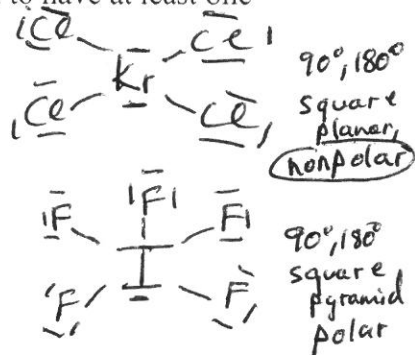 to have at least one
Cl Cl
Kr
Cl Cl
90°, 180°
square
planar,
nonpolar
F F F
I
F F
90°, 180°
square
pyramid
polar